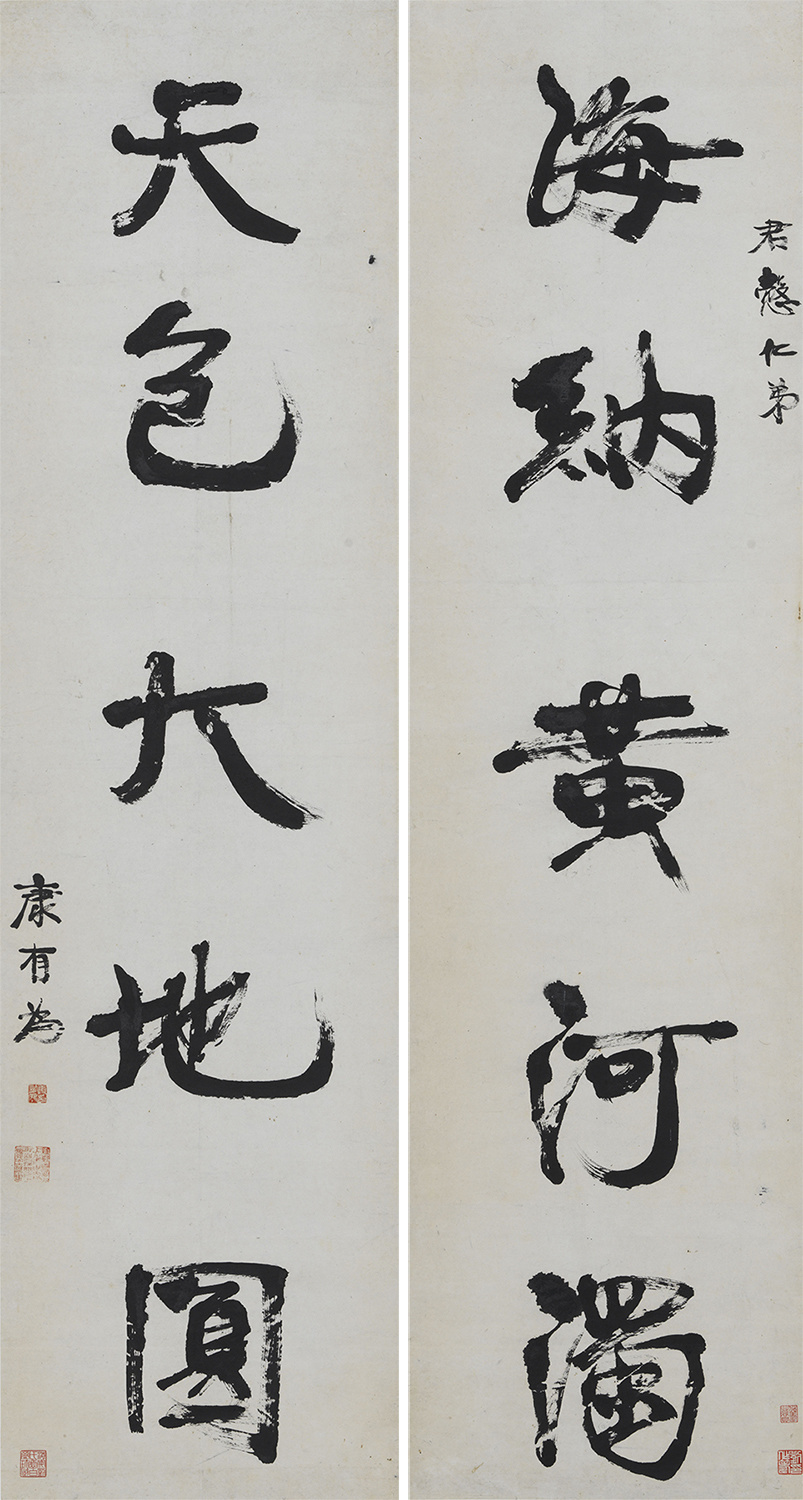 君慤仁弟
海納黃河濁
天包大地圓
康有為